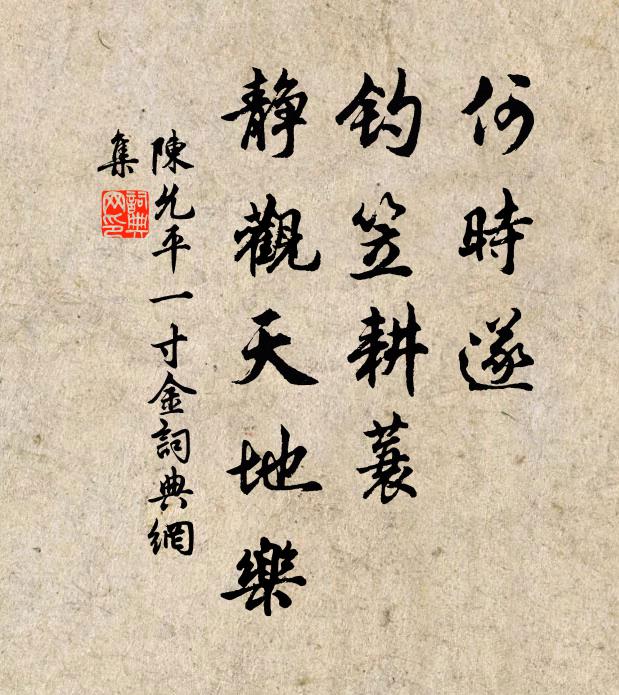 何時遂
釣笠耕蓑
靜觀天地樂
陳允平一寸金詞典網
集
詞典
网印